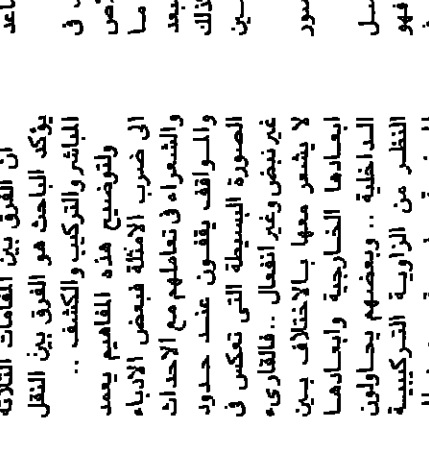 ان الفرق بين المقامات الثلاثة
يؤكد الباحث هو الفرق بين النقل
المباشر والتركيب والكشف ..
ولتوضيح هذه المفاهيم يعمد
الى ضرب الامثلة فبعض الادباء
والشعراء في تعاملهم مع الاحداث
والمواقف يقفون عند حدود
الصورة البسيطة التي تعكس في
غير نبض وغير انفعال .. فالقارىء
لا يشعر معها بالاختلاف بين
ابعادها الخارجية وابعادها
الداخلية .. وبعضهم يحاولون
النظر من الزاوية التركيبية